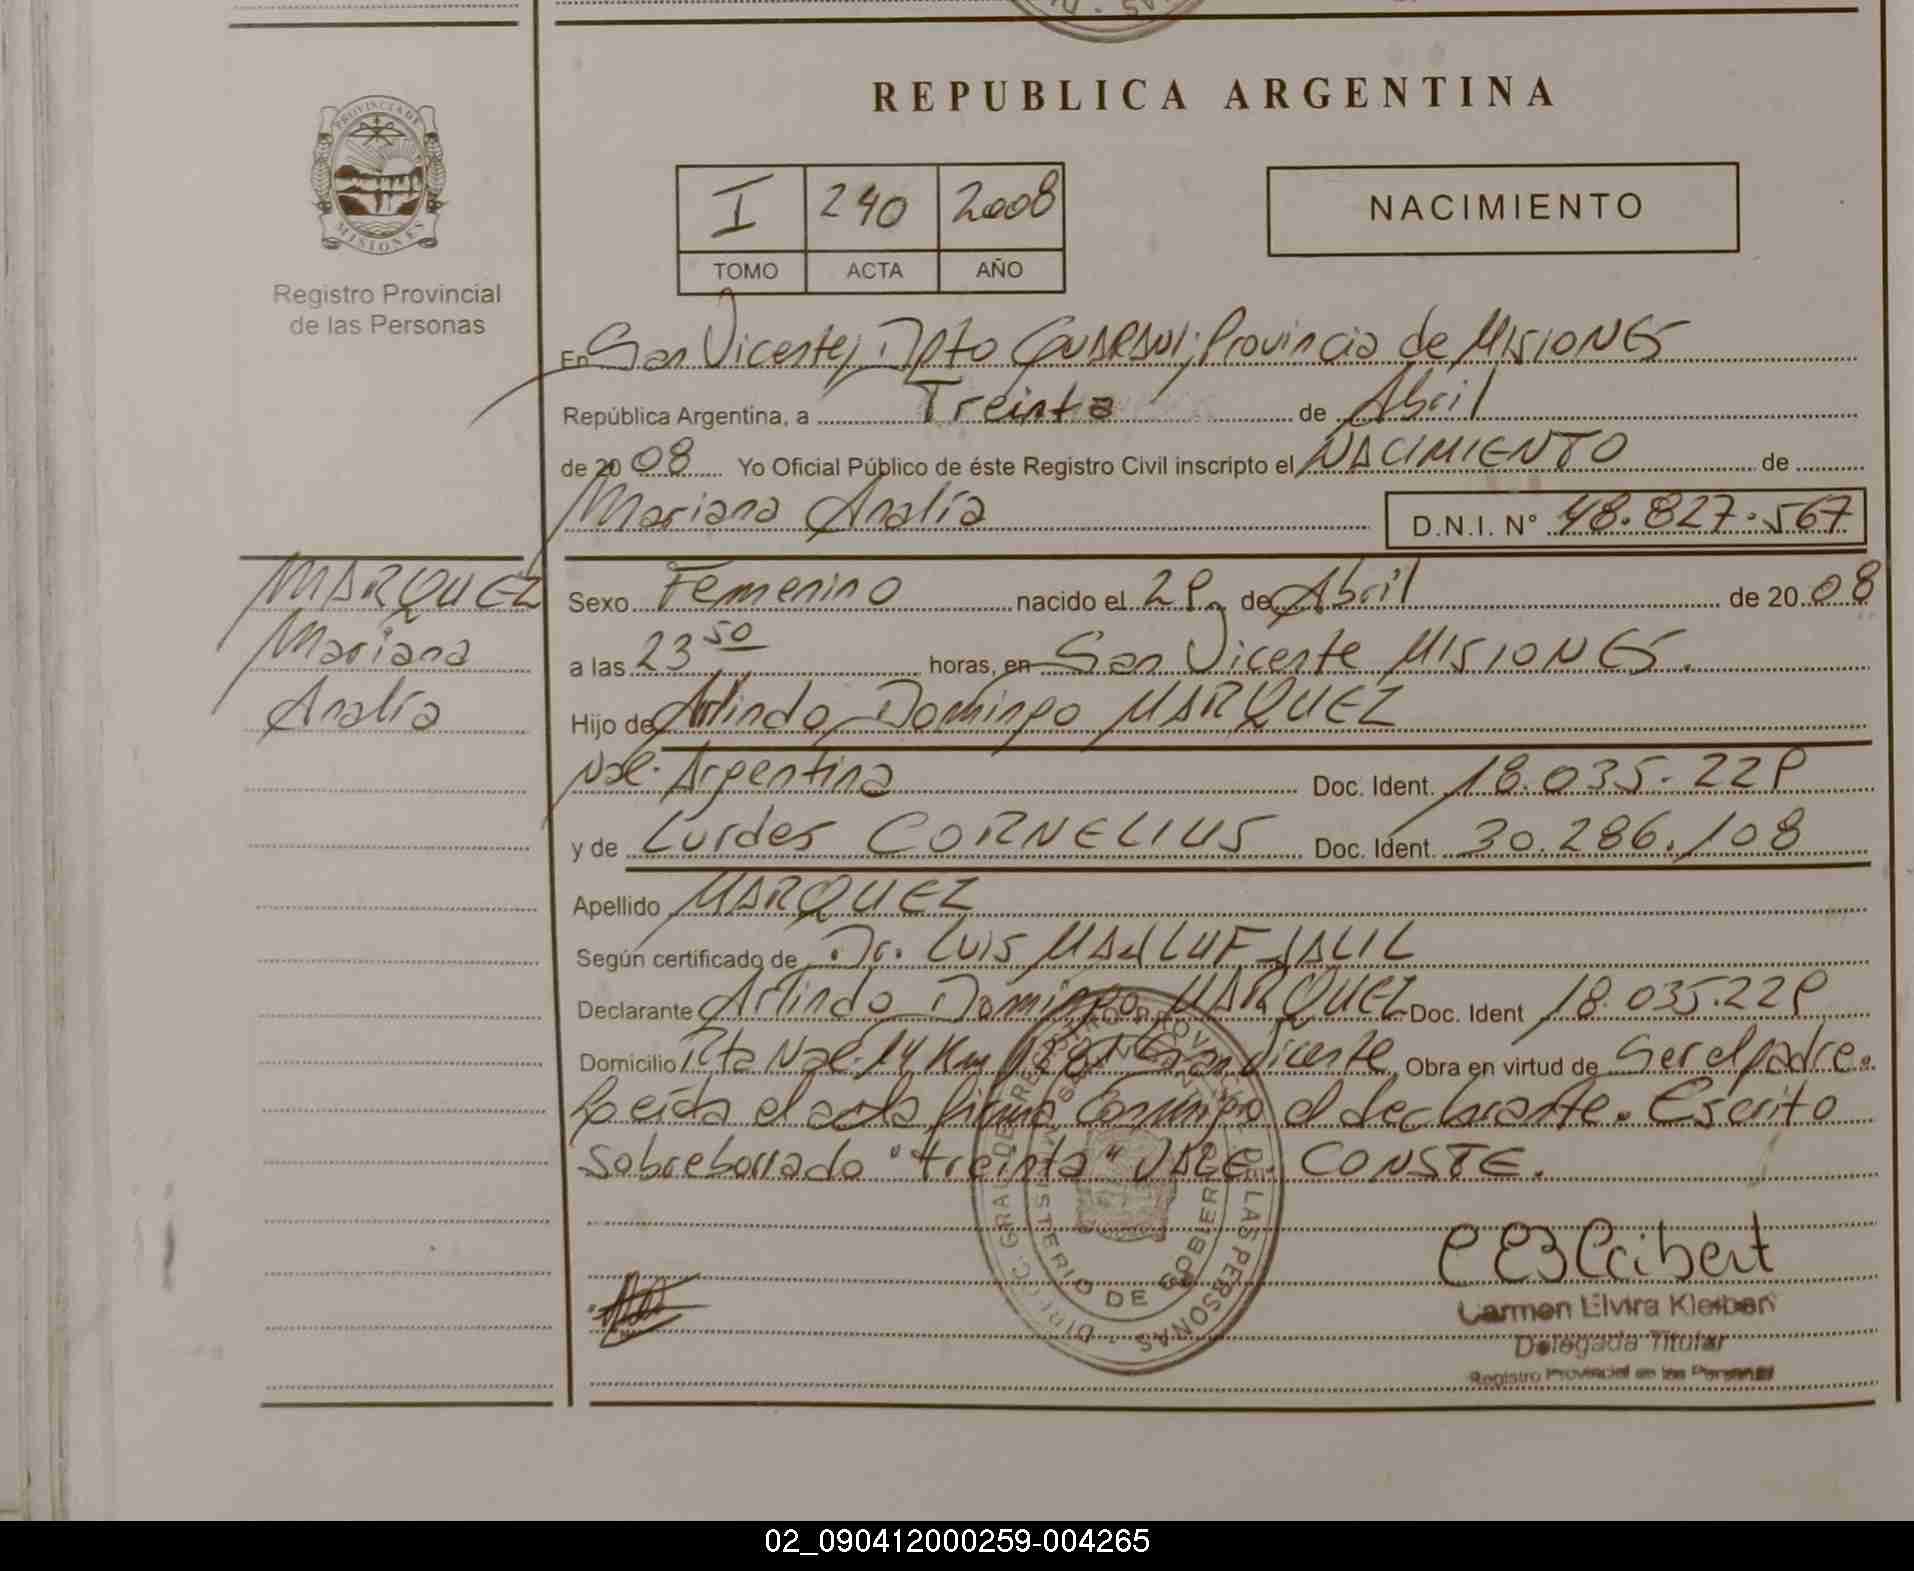 REPUBLICA ARGENTINA
PROVINCIA DE
MISIONES
Registro Provincial
de las Personas
I 240 2008
TOMO ACTA AÑO
NACIMIENTO
En San Vicente, Dpto GUARANI; Provincia de MISIONES
República Argentina, a Treinta de Abril
de 2008 Yo Oficial Público de éste Registro Civil inscripto el NACIMIENTO de
Mariana Analía D.N.I. N° 48.827.567
MARQUEZ
Mariana
Analía
Sexo Femenino nacido el 29 de Abril de 2008
a las 23 50 horas, en San Vicente MISIONES.
Hijo de Arlindo Domingo MARQUEZ
Nac. Argentina Doc. Ident. 18.035.229
y de Lurdes CORNELIUS Doc. Ident. 30.286.108
Apellido MARQUEZ
Según certificado de Dr. LUIS MALLUF JALIL
Declarante Arlindo Domingo MARQUEZ Doc. Ident 18.035.229
Domicilio Rta Nac. 14 Km San Vicente Obra en virtud de Ser el padre.
Leída el acta firma conmigo el declarante. Escrito
Sobreborrado "treinta" VALE. CONSTE.
DIREC. GRAL. DE REGISTRO PROVINCIAL DE LAS PERSONAS
MINISTERIO DE GOBIERNO
C E B Cleibert
Carmen Elvira Kleibert
Delegada Titular
Registro Provincial de las Personas
02_090412000259-004265